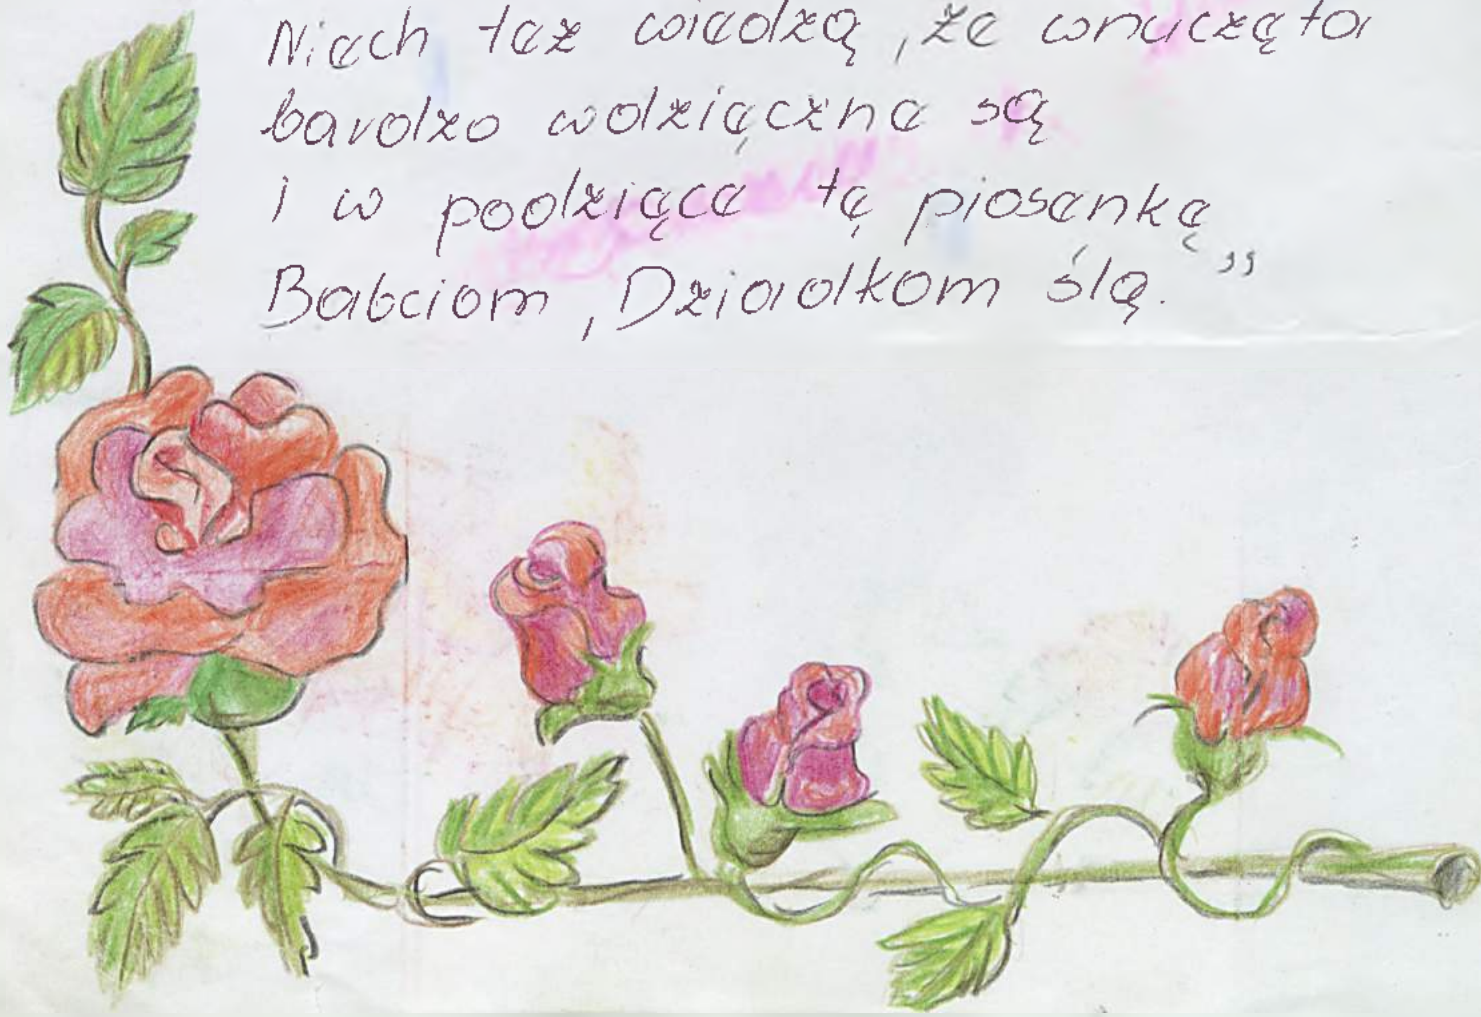 Niech też wiedzą, że wnuczęta
bardzo wdzięczne są
i w podzięce tę piosenkę
Babciom, Dziadkom ślą.”